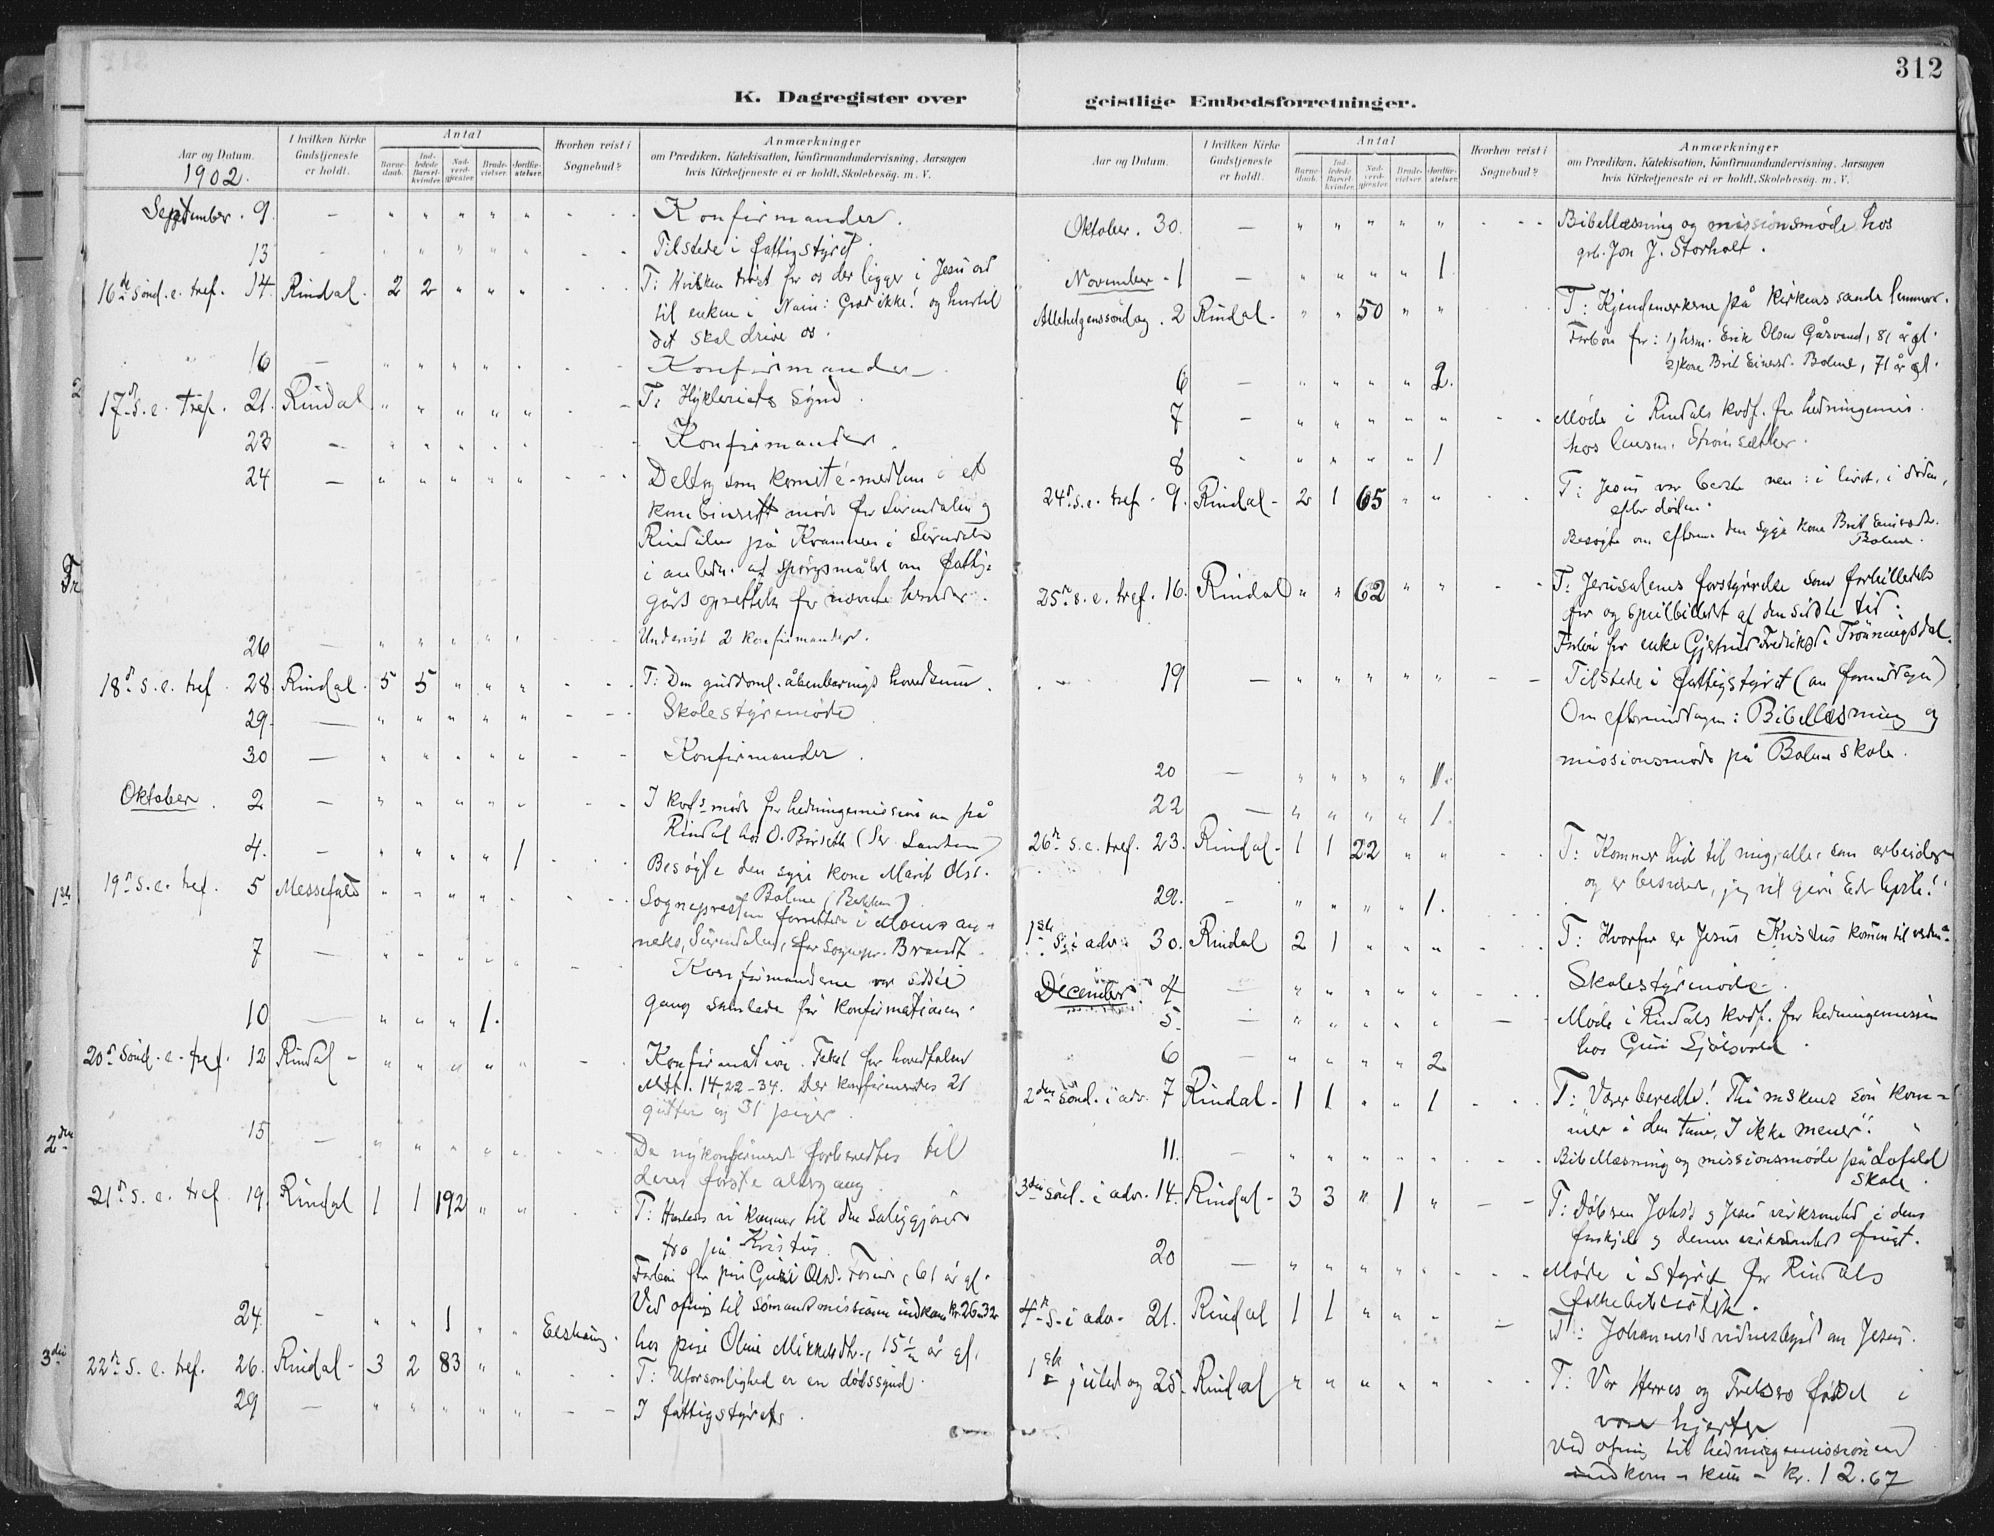 312
K. Dagregister over
Aar og Datum.
1902.
I hvilken Kirke Gudstjeneste er holdt.
Antal
Barne-daab.
Ind-ledede Barsel-kvinder.
Nad-verd-gjester.
Brude-vielser.
Jordfæ-stelser.
Hvorhen reist i Sognebud?
Anmærkninger
om Prædiken, Katekisation, Konfirmandundervisning, Aarsagen
hvis Kirketjeneste ei er holdt, Skolebesøg. m. V.
September. 9. — " " " " " Konfirmander.
13 — " " " " " Tilstede i fattigstyret.
16de sønd. e. tref. 14. Rindal. 2 2 " " " T: Hvilken trøst for os der ligger i Jesu ord
til enken i Nain: Græd ikke! og hvortil
det skal drive os.
16 — " " " " " Konfirmander
17d s. e. tref. 21. Rindal " " " " " T: Hykleriets synd.
22 — " " " " " Konfirmander.
24 — " " " " " Deltog som komité-medlem i et
kombineret møde for Surendalen og
Rindalen på Kvammen i Surendalen
i anledn. af spørgsmålet om fattig-
gårds oprettelse for nævnte herreder.
26 — " " " " " Undervist 2 konfirmander.
18d s. e. tref. 28. Rindal. 5 5 " " " T: Den guddoml. åbenbarings hovedsum.
29. — " " " " " Skolestyremøde
30 — " " " " " Konfirmander.
Oktober. 2 — " " " " " I kvfs møde for hedningemissionen på
Rindal hos O. Børseth
4. — " " " " 1 Besøgte den syge kone Marit Olsd.
Bolme (Bakken)
19d s. e. tref. 5 Messefald " " " " " Sognepresten forrettede i Moens an-
neks, Surendalen, for sognepr. Brandt.
7 — " " " " " Konfirmanderne var sidste
gang samlede før konfirmationen.
10 — " " " 1.
20d Sønd. e. tref. 12 Rindal - " " " " " Konfirmation. Tekst for hovedtalen
Mtth. 14,22-34. Der konfirmeredes 21
gutter og 31 piger.
15 — " " " " " De nykonfirmerede forberedtes til
deres første altergang.
21d s. e. tref. 19. Rindal 1 1 192 " " T: Hvorledes vi kommer til den saliggjørende
tro på Kristus.
Forbøn for pige Guri Olsd. Foseide, 61 år gl.
Ved ofring til sømandsmissionen indkom kr. 26.32
24. - " " 1 " " hos pige Oline Mikkelsdtr., 15 1/2 år gl.
22d s. e. tref. 26. Rindal - 3 2 83 " " T: Uforsonlighed er en dødssynd.
29 — " " " " " I fattigstyret.
geistlige Embedsforretninger.
Aar og Datum.
I hvilken Kirke Gudstjeneste er holdt.
Antal
Barne-daab.
Ind-ledede Barsel-kvinder.
Nad-verd-gjester.
Brude-vielser.
Jordfæ-stelser.
Hvorhen reist i Sognebud?
Anmærkninger
om Prædiken, Katekisation, Konfirmandundervisning, Aarsagen
hvis Kirketjeneste ei er holdt, Skolebesøg. m. V.
Oktober. 30. — " " " " " Bibellæsning og missionsmøde hos
grb. Jon J. Storholt.
November - 1 — " " " " 1
Allehelgenssøndag. 2 Rindal - " " 50 " " T: Kjendemerkerne på kirkens sande lemmer.
Forbøn for: 1) hsm. Erik Olsen Gåsvand, 81 år gl.
2) kone Brit Einersd. Bolme, 71 år gl.
6 — " " " " 2.
7 — " " " " " Møde i Rindals kvdf. for hedningemis.
hos lensm. Strømsæther.
8 - " " " " 1
24d s. e. tref. 9. Rindal - 2 1 65 " " T: Jesus vor bedste ven: i livet, i døden,
efter døden.
Besøgte om efterm. den syge kone Brit Einersdtr.
Bolme.
25d s. e. tref. 16. Rindal " " 62 " " T: Jerusalems forstyrrelse som forbillede
for og speilbilledet af den sidste tid.
Forbøn for enke Gjertrud Fredriksd. Trønningsdal.
19 — " " " " " Tilstede i fattigstyret (om formiddagen)
Om eftermiddagen: Bibellæsning og
missionsmøde på Bolme skole.
20 — " " " " 1.
22 — " " " " 1.
26d s. e. tref. 23. Rindal - 1 1 22 " " T: Kommer hid til mig, alle, som arbeider
og er besværet, jeg vil give Eder hvile!
29. - " " " " 1.
1ste s. i adv. 30. Rindal 2 1 " " " T: Hvorfor er Jesus Kristus kommen til verden
December. 4 — " " " " " Skolestyremøde.
5. — " " " " " Møde i Rindals kvdf. for hedningemissin
hos Guri Sjølsvold.
6 — " " " " 2
2den sønd. i adv. 7 Rindal - 1 1 " " 1 T: Værer beredte! Thi mskens søn kom-
mer i den time, I ikke mener".
11. — " " " " " Bibellæsning og missionsmøde på Lofald
Skole.
3die sønd. i adv. 14. Rindal - 3 3 " 1 " T: Døberen Johs's og Jesu virksomhed i dens
forskjel og denne virksomheds frugt.
20 — " " " " " Møde i Styret for Rindals
folkebibliothek.
4d s. i adv. 21. Rindal 1 1 " " " T: Johannes's vidnesbyrd om Jesus.
1ste juledag 25. Rindal " " " " " T: Vor Herres og Frelsers fødsel i
vore hjerter
Ved ofring til hedningemissionen
indkom - kun - kr. 12.67